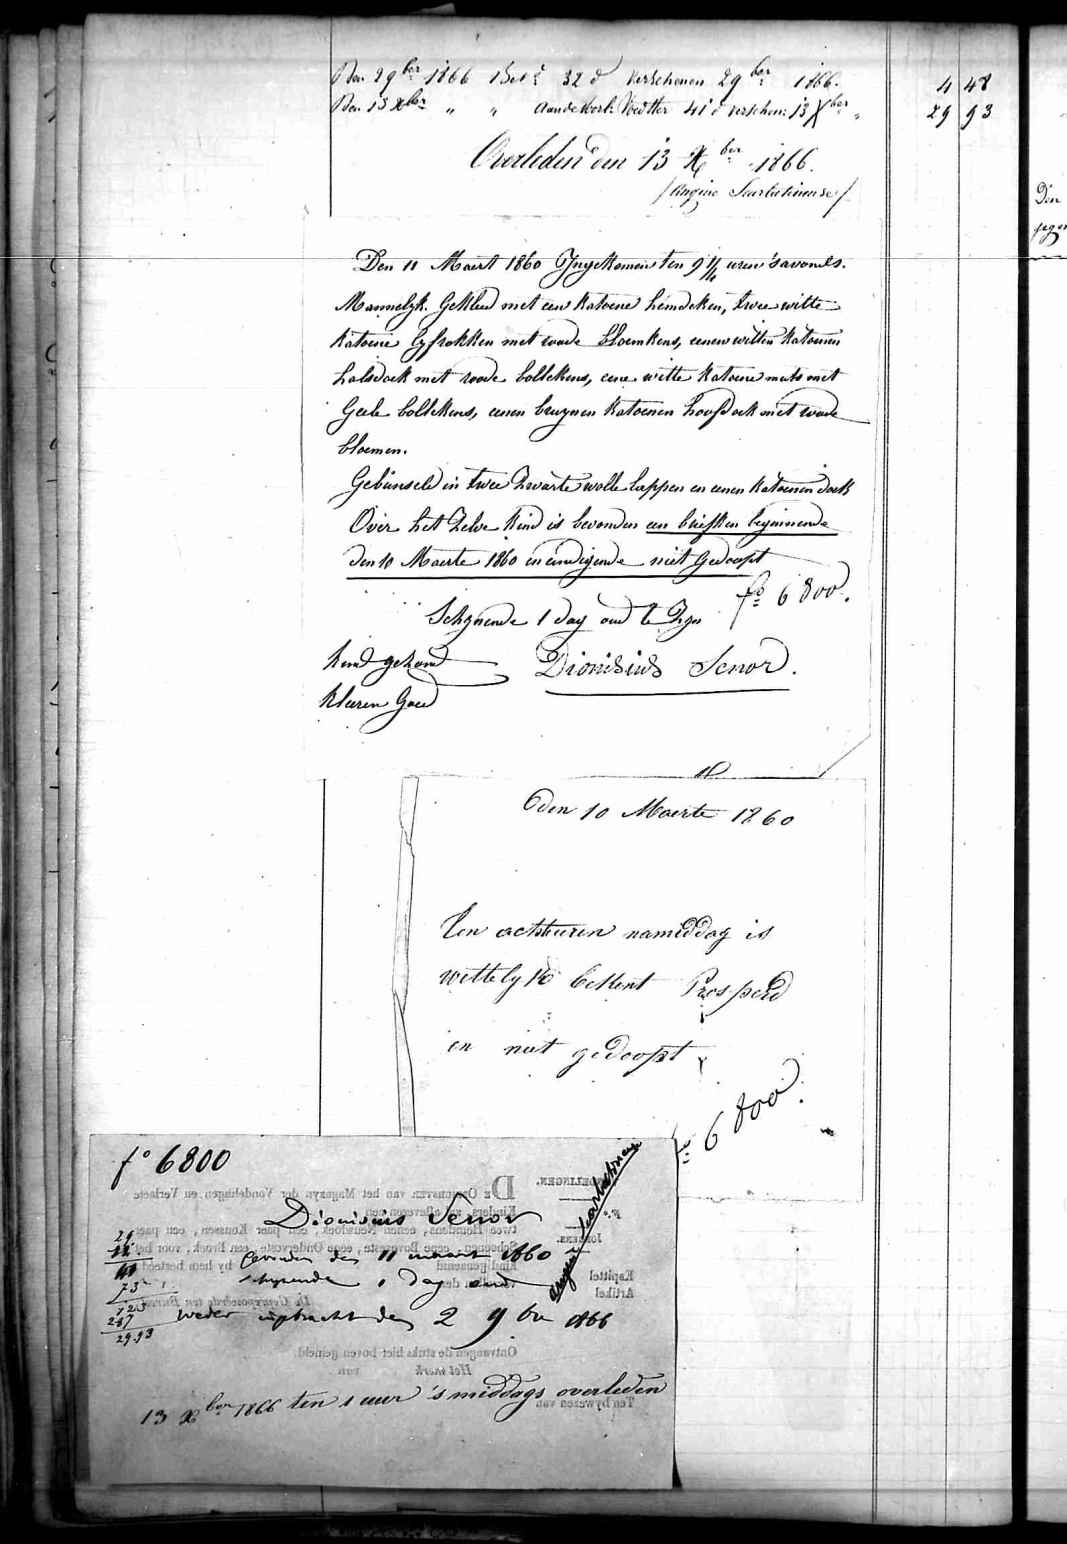 Den 29ber 1866 32 d verschenen 29ber 1866. 4 48
Den 13 Xber " " 41 d verschen: 13 Xber " 29 93
Overleden den 13 Xber 1866.
/Angine Scarlatineuse/
Den 11 Maert 1860 Ingekomen ten 9 1/4 uren 's avonds.
Mannelyk. Gekleed met een katoene hemdeken, twee witte
katoene lyfrokken met roode bloemkens, eenen witten katoenen
halsdoek met roode bollekens, eene witte katoene muts met
Geele bollekens, eenen bruynen katoenen hoofdoek met roode
bloemen.
Gebunseld in twee zwarte wolle lappen en eenen katoenen doek
Over het zelve kind is bevonden een briefken beginnende
den 10 Maerte 1860 en eindigende niet gedoopt
fo 6800.
Schynende 1 dag oud te zyn
kind gezond
Dionisius Senor.
kleeren Goed
den 10 Maerte 1860
ten acht uuren namiddag is
wettelyk bekent Prosperd
en niet gedoopt
fo 6800.
fo 6800
Dionisius Senor
gevonden den 11 maart 1860
schynende 1 dag oud
angine scarlatineuse
weder ingebracht den 2 9ber 1866
13 Xber 1866 ten 1 uur 's middags overleden
73
123
287
29.93
DE Ontvanger van het Magazyn der Vondelingen en Verlaete
Kinders, zal afleveren een
Kapittel
Artikel
Ontvangen de stuks hier boven gemeld.
Het merk van
Ten bywezen van
Den